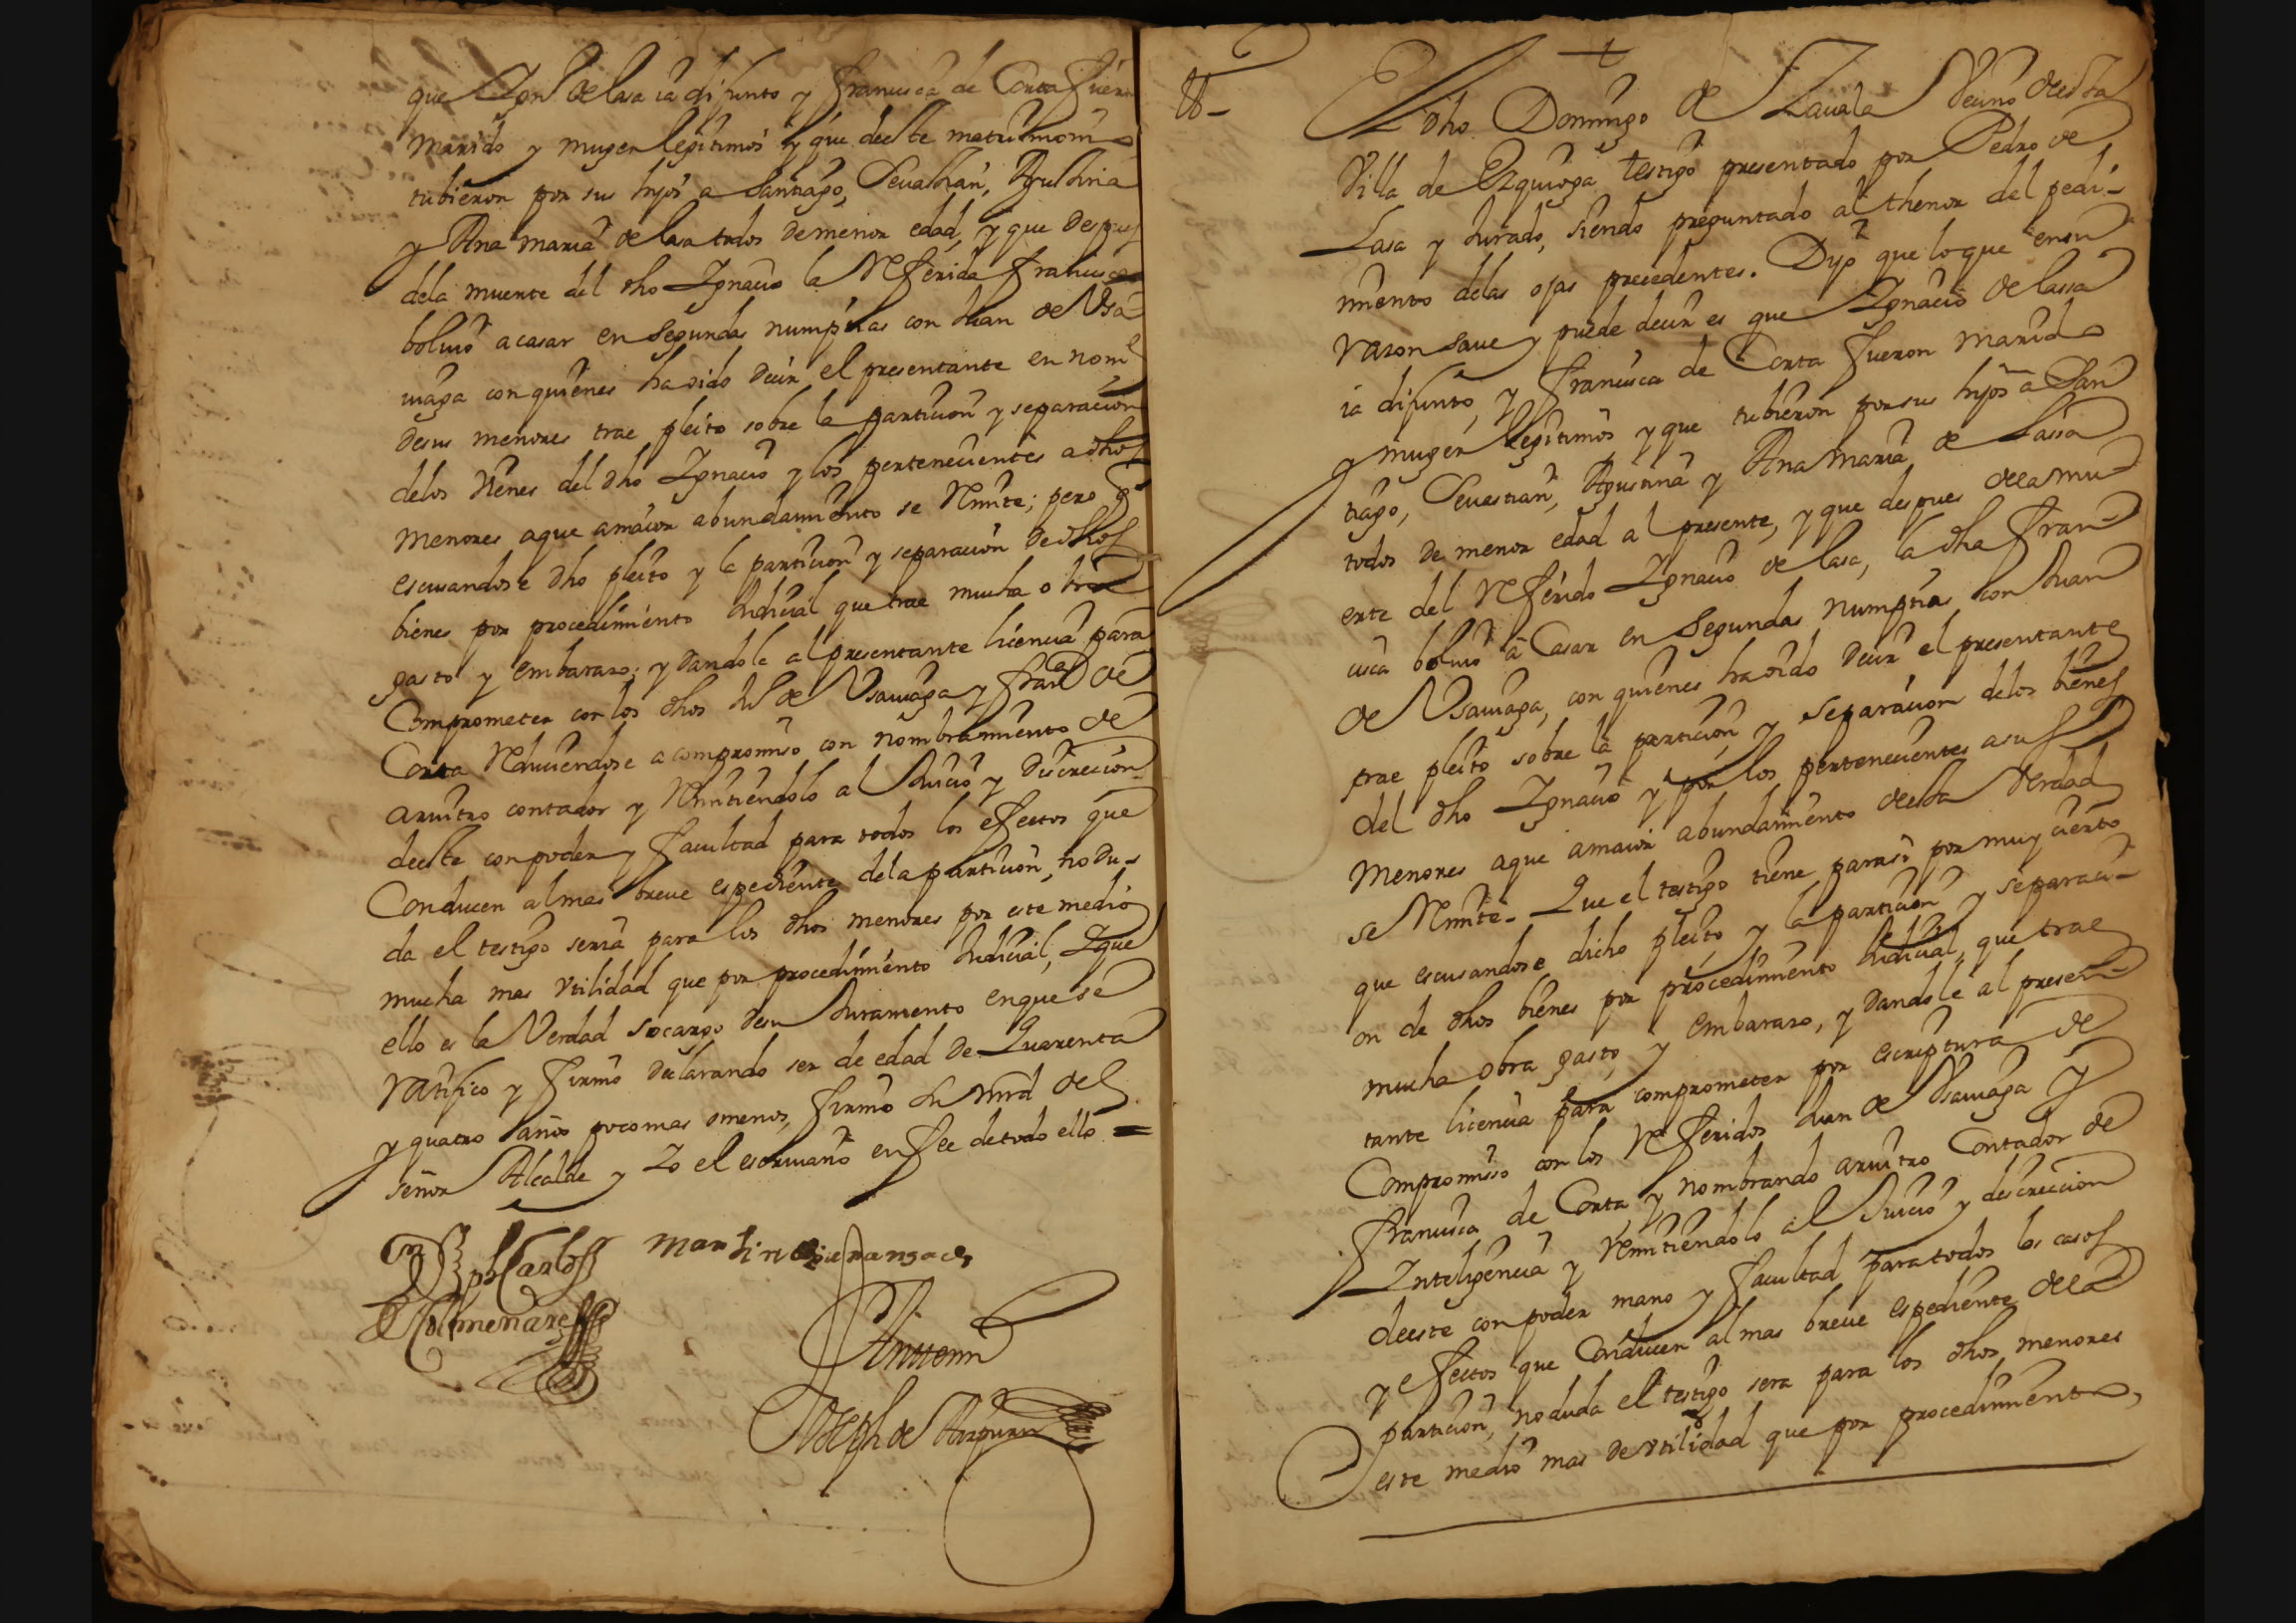 que Ign.º de lasa ia difunto y francisca de Corta fueron
marido y muger legitimos y que deeste matrimonio
tubieron por sus hijos a Santiago, Sevastian, Agustina
y Ana maria de lasa todos de menor edad, y que despues
dela muerte del dho Ignacio la Referida francisca
bolvio a casar en segundas numpcias con Juan de Usa
uiaga con quienes ha oido decir el presentante en nombre
desus menores trae pleito sobre la particion y separacion
delos vienes del dho Ignacio y los pertenecientes a dhos
menores aque amaior abundamiento se Remite; pero q
escusandose dho pleito y la particion y separacion de dhos
bienes por procedimiento Judicial que trae mucha obra
gasto y embarazo; y dandole al presentante licencia para
Comprometer con los dhos Ju.º de Usauiaga y fran.ca de
Corta Reduciendose a compromiso con nombramiento de
arvitro contador y Remitiendolo al Juicio y discrecion
deeste con poder y facultad para todos los efectos que
Conducen al mas breve espediente dela particion, no du-
da el testigo seria para los dhos menores por este medio
mucha mas vtilidad que por procedimiento Judicial, Y que
ello es la Verdad socargo desu Juramento en que se
ratifico y firmo declarando ser de edad de Quarenta
y quatro años poco mas o menos, firmo su mrd del
señor Alcalde y Yo el escriuano en fee de todo ello =
Carlos Martin
Colmenares
Ante mi
Joseph de Aizpuru
tt-
El dho Domingo de Zauala Vecino deesta
Villa de Ezquioga testigo presentado por Pedro de
Lasa y Jurado, siendo preguntado al thenor del pedi-
miento delas ojas precedentes. Dijo que lo que en su
razon save y puede decir es que Ignacio de lassa
ia difunto, y francisca de Corta fueron marido
y muger legitimos y que tubieron por sus hijos a San
tiago, Sevastian, Agustina y Ana Maria de Lassa
todos de menor edad al presente, y que despues dela mu
erte del Referido Ignacio de lasa, la dha fran-
cisca bolvio a Casar en segundas numptias con Juan
de Usauiaga, con quienes ha oido decir el presentante
trae pleito sobre la particion y separacion delos bienes
del dho Ignacio y por los pertenecientes asus
Menores aque amaior abundamiento deesta Verdad
se Remite- Que el testigo tiene parasi por muy cierto
que escusandose dicho pleito, y la particion y separaci-
on de dhos bienes por procedimiento Judicial, que trae
mucha obra gasto, y embarazo, y dandole al presen-
tante licencia para comprometer por escriptura de
Compromiso con los Referidos Juan de Usauiaga y
francisca de Corta, y nombrando arvitro Contador de
Inteligencia y Remitiendolo al Juicio y descrecion
deeste con poder mano y facultad para todos los casos
y efectos que Conducen al mas breve espediente dela
particion, no duda el testigo sera para los dhos menores
este medio mas de vtilidad que por procedimiento,